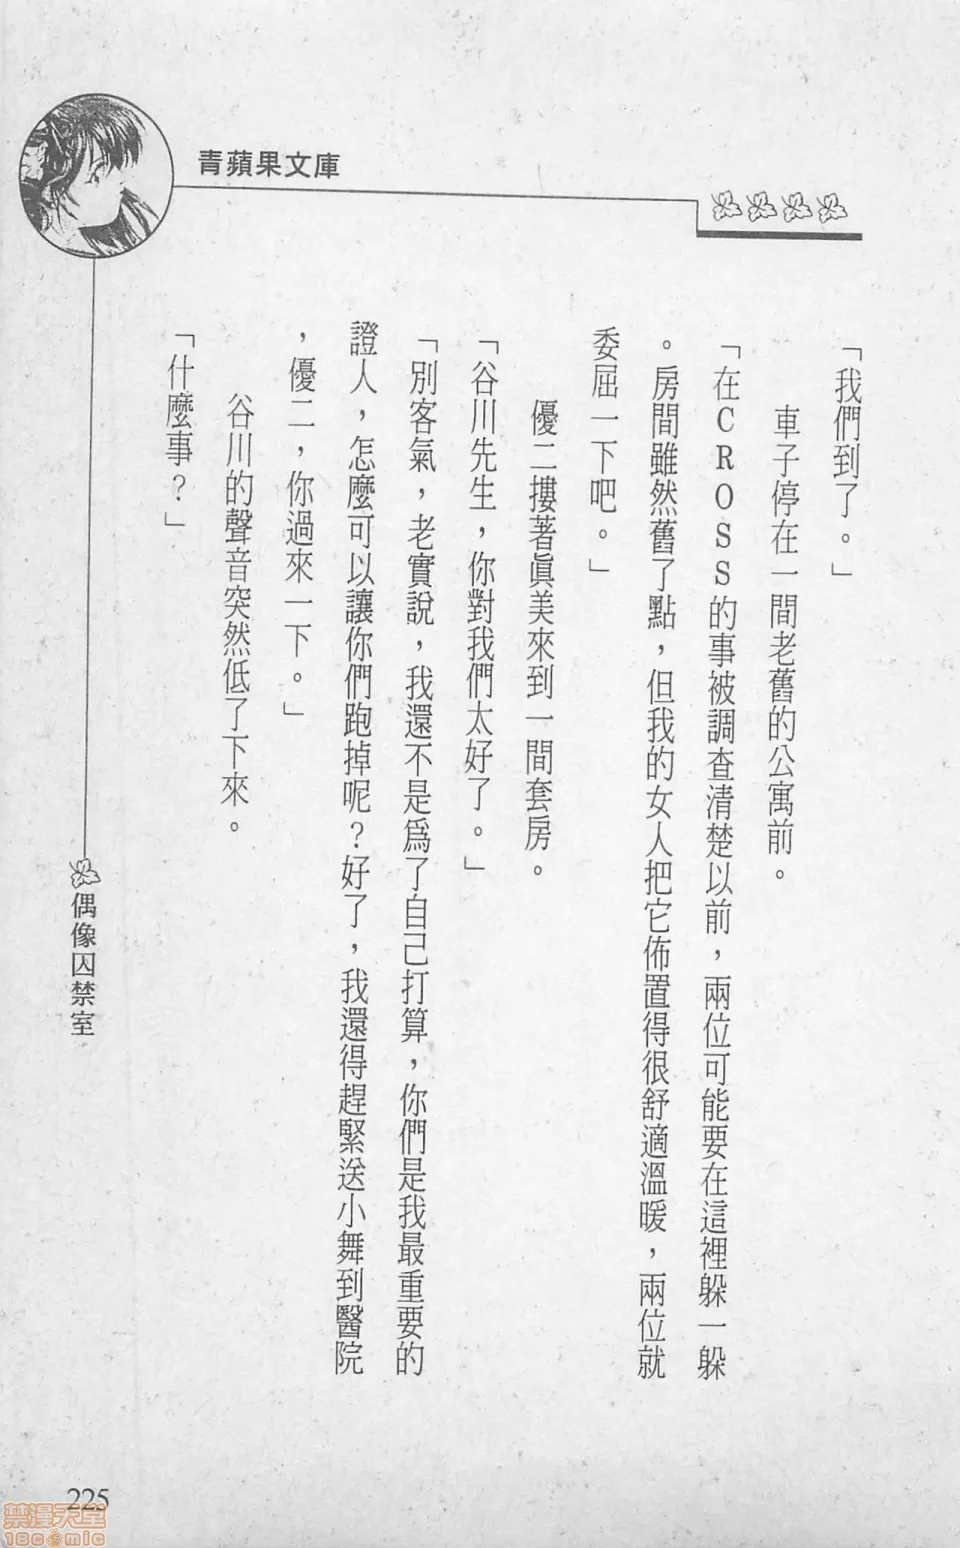 青蘋果文庫
「我們到了。」
車子停在一間老舊的公寓前。
「在CROSS的事被調查清楚以前，兩位可能要在這裡躲一躲
。房間雖然舊了點，但我的女人把它佈置得很舒適溫暖，兩位就
委屈一下吧。」
優二摟著眞美來到一間套房。
「谷川先生，你對我們太好了。」
「別客氣，老實說，我還不是爲了自己打算，你們是我最重要的
證人，怎麼可以讓你們跑掉呢？好了，我還得趕緊送小舞到醫院
，優二，你過來一下。」
谷川的聲音突然低了下來。
「什麼事？」
偶像囚禁室
225
禁漫天堂
18comic